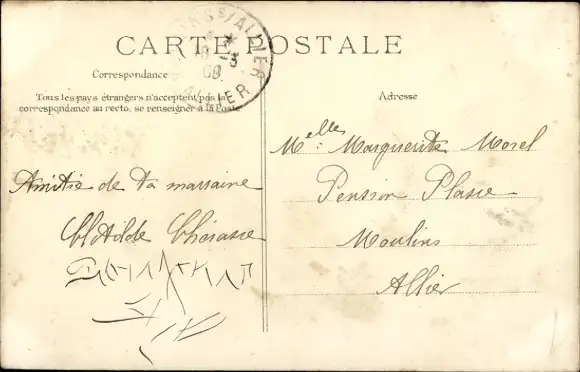 CARTE POSTALE
Correspondance
Tous les pays étrangers n'acceptent pas la
correspondance au recto, se renseigner à la Poste
Amitié de ta marraine
Clotilde
Adresse
Melle Marguerite Morel
Pension
Moulins
Allier
S/ALLIER
ALLIER